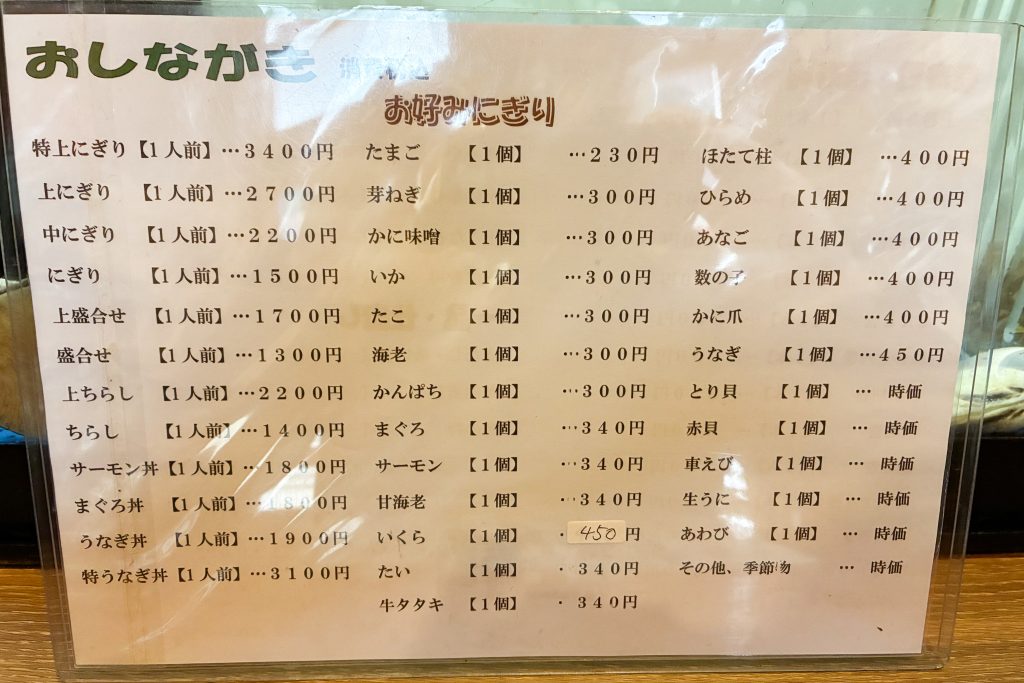 おしながき
お好みにぎり
特上にぎり【1人前】…3400円
上にぎり 【1人前】…2700円
中にぎり 【1人前】…2200円
にぎり 【1人前】…1500円
上盛合せ 【1人前】…1700円
盛合せ 【1人前】…1300円
上ちらし 【1人前】…2200円
ちらし 【1人前】…1400円
サーモン丼【1人前】…1800円
まぐろ丼 【1人前】…1800円
うなぎ丼 【1人前】…1900円
特うなぎ丼【1人前】…3100円
たまご 【1個】 …230円
芽ねぎ 【1個】 …300円
かに味噌 【1個】 …300円
いか 【1個】 …300円
たこ 【1個】 …300円
海老 【1個】 …300円
かんぱち 【1個】 …300円
まぐろ 【1個】 …340円
サーモン 【1個】 …340円
甘海老 【1個】 …340円
いくら 【1個】 ・450円
たい 【1個】 ・340円
牛タタキ 【1個】 ・340円
ほたて柱 【1個】 …400円
ひらめ 【1個】 …400円
あなご 【1個】 …400円
数の子 【1個】 …400円
かに爪 【1個】 …400円
うなぎ 【1個】 …450円
とり貝 【1個】 … 時価
赤貝 【1個】 … 時価
車えび 【1個】 … 時価
生うに 【1個】 … 時価
あわび 【1個】 … 時価
その他、季節物 … 時価